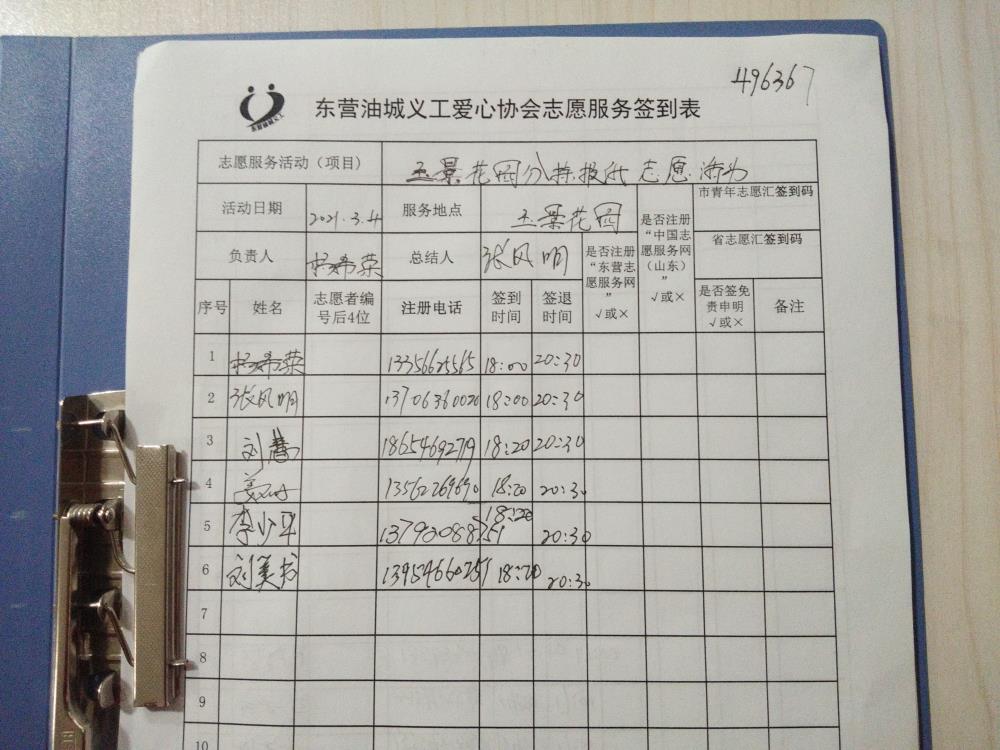 496367
东营油城义工
东营油城义工爱心协会志愿服务签到表
志愿服务活动（项目） 玉景花园分拣报纸志愿活动
活动日期 2021.3.4 服务地点 玉景花园 是否注册“中国志愿服务网（山东）”√或× 市青年志愿汇签到码
负责人 杨希荣 总结人 张风明 是否注册“东营志愿服务网”√或× 省志愿汇签到码
序号 姓名 志愿者编号后4位 注册电话 签到时间 签退时间 是否签免责申明√或× 备注
1 杨希荣 13356625565 18:00 20:30
2 张风明 13706360020 18:00 20:30
3 刘 18654692719 18:20 20:30
4 13562269690 18:20 20:30
5 李少华 13790088751 18:20 20:30
6 刘美芬 13954660751 18:20 20:30
7
8
9
10